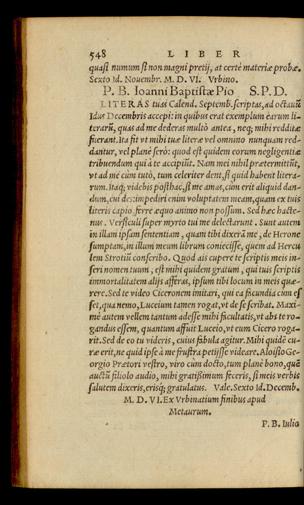 548 LIBER
quasi numum si non magni pretij, at certè materiæ probæ.
Sexto Id. Nouembr. M. D. VI. Vrbino.
P. B. Ioanni Baptistæ Pio S. P. D.
LITERAS tuas Calend. Septemb. scriptas, ad octauũ
Idus Decembris accepi: in quibus erat exemplum earum li-
terarũ, quas ad me dederas multò antea, neq; mihi redditæ
fuerant. Ita fit vt mihi tuæ literæ vel omnino nunquam red-
dantur, vel planè serò: quod est quidem eorum negligentiæ
tribuendum qui à te accipiũt. Nam mei nihil prætermittũt,
vt ad me cùm tutò, tum celeriter dent, si quid habent litera-
rum. Itaq; videbis posthac, si me amas, cùm erit aliquid dan-
dum, cui des: impediri enim voluptatem meam, quam ex tuis
literis capio ferre æquo animo non possum. Sed hæc hacte-
nus. Versiculi super myrto tui me delectarunt. Sunt autem
in illam ipsam sententiam, quam tibi dixerã me, de Herone
sumptam, in illum meum librum coniecisse, quem ad Hercu
lem Strotiũ conscribo. Quod ais cupere te scriptis meis in-
seri nomen tuum, est mihi quidem gratum, qui tuis scriptis
immortalitatem alijs afferas, ipsum tibi locum in meis quæ-
rere. Sed te video Ciceronem imitari, qui ea facundia cùm es
set, qua nemo, Lucceium tamen rogat, vt de se scribat. Maxi-
mè autem vellem tantum adesse mihi facultatis, vt abs te ro-
gandus essem, quantum affuit Lucceio, vt eum Cicero roga-
rit. Sed de eo tu videris, cuius fabula agitur. Mihi quidẽ cu-
ræ erit, ne quid ipse à me frustrà petijsse videare. Aloisio Ge-
orgio Prætori vestro, viro cùm docto, tum planè bono, quẽ
auctũ filiolo audio, mihi gratissimum feceris, si meis verbis
salutem dixeris, erisq; gratulatus. Vale. Sexto Id. Decemb.
M. D. VI. Ex Vrbinatium finibus apud
Metaurum.
P. B. Iulio